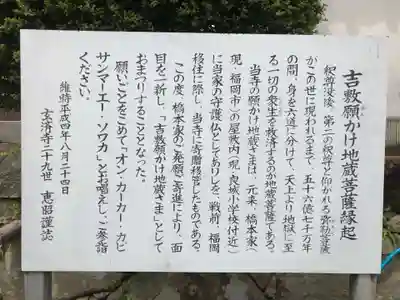 吉敷願かけ地蔵菩薩縁起
釈尊没後、第二の釈尊と仰がれる弥勒菩薩
がこの世に現われるまで、五十六億七千万年
の間、身を六道に分けて、天上より地獄に至
る一切の衆生を救済するのが地蔵菩薩である。
当寺の願かけ地蔵さまは、元来、橋本家(
現・福岡市)の屋敷内(現・良城小学校付近)
に当家の守護仏としてありしを、戦前、福岡
移住に際し、当寺に寄贈移管したものである。
この度、橋本家のご発願ご寄進により、面
目を一新し、「吉敷願かけ地蔵さま」として
おまつりすることとなった。
願いごとをこめて「オン・カーカー・カビ
サンマーエー・ソワカ」とお唱えし、ご参詣
ください。
維時平成四年八月二十四日
玄済寺二十九世 恵昭謹誌